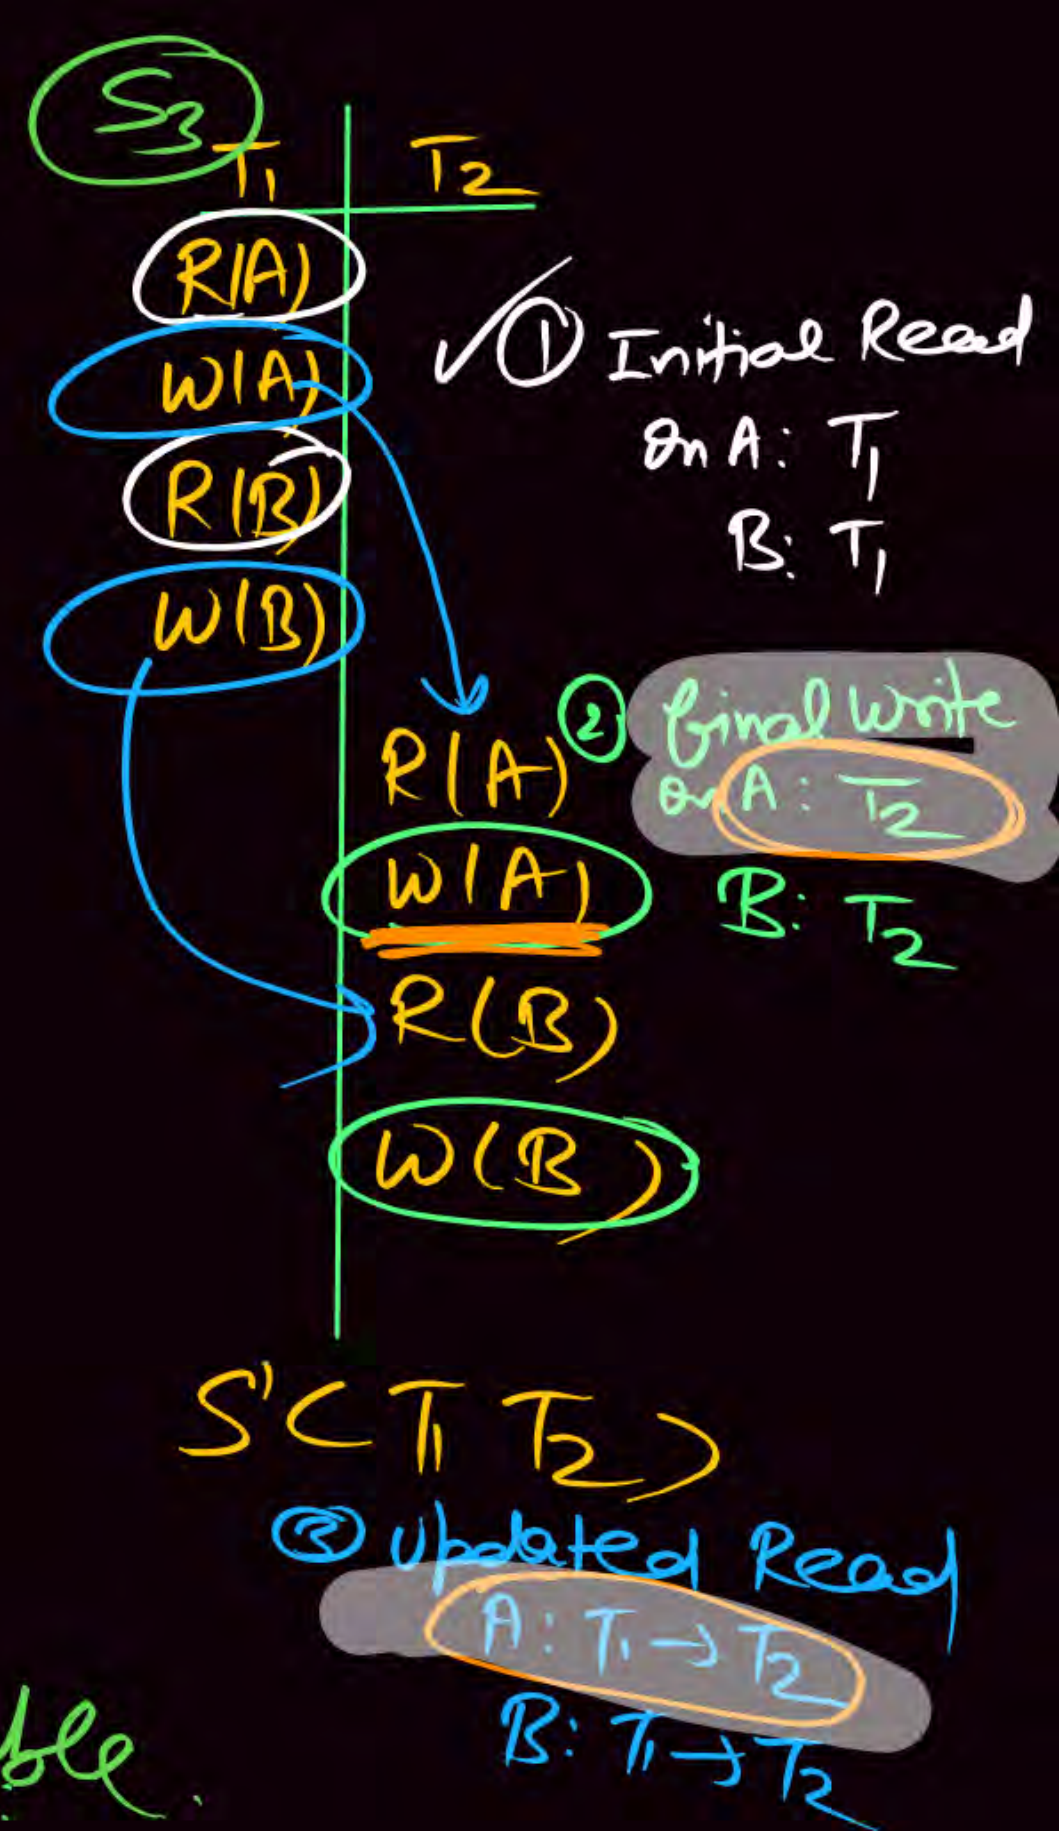 S3
T1 T2
R(A)
W(A)
R(B)
W(B)
① Initial Read
on A: T1
B: T1
R(A)
W(A)
R(B)
W(B)
② final write
on A: T2
B: T2
S'(T1 T2)
③ Updated Read
A: T1 → T2
B: T1 → T2
ble.